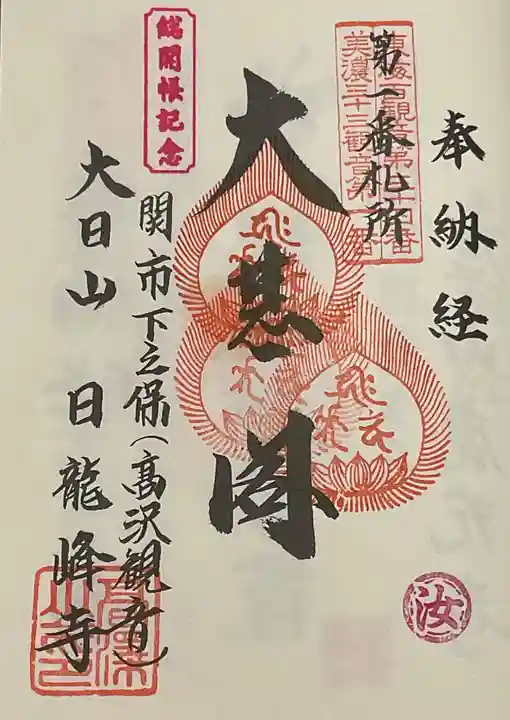 奉納経
東海百観音第三十四番
美濃三十三観音第一番
第一番札所
大慈閣
関市下之保(高沢観音)
大日山 日龍峰寺
総開帳記念
汝